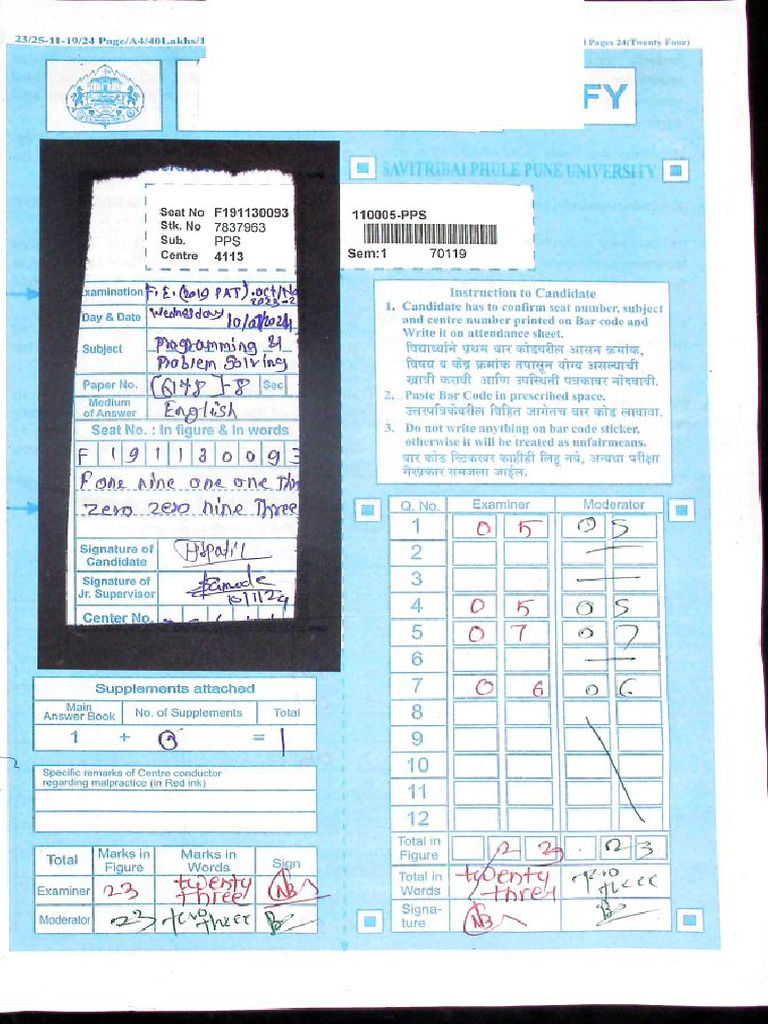 23/25-11-19/24 Page/A4/40Lakhs/1
Pages 24(Twenty Four)
FY
SAVITRIBAI PHULE PUNE UNIVERSITY
Seat No F191130093
Stk. No 7837963
Sub. PPS
Centre 4113
110005-PPS
Sem:1 70119
Examination F.E. (2019 PAT). Oct/No
Day & Date Wednesday 10/01/2024
Subject Programming & Problem Solving
Paper No. [6178]-8 Sec
Medium of Answer English
Seat No. : In figure & In words
F 1 9 1 1 3 0 0 9 3
F one nine one one Thr
zero zero nine Three
Signature of Candidate
Signature of Jr. Supervisor
10/1/24
Center No.
Instruction to Candidate
1. Candidate has to confirm seat number, subject
and centre number printed on Bar code and
Write it on attendance sheet.
विद्यार्थ्याने प्रथम बार कोडवरील आसन क्रमांक,
विषय व केंद्र क्रमांक तपासून योग्य असल्याची
खात्री करावी आणि उपस्थिती पत्रकावर नोंदवावी.
2. Paste Bar Code in prescribed space.
उत्तरपत्रिकेवरील विहित जागेतच बार कोड लावावा.
3. Do not write anything on bar code sticker,
otherwise it will be treated as unfairmeans.
बार कोड स्टिकरवर काहीही लिहू नये, अन्यथा परीक्षा
गैरप्रकार समजला जाईल.
Q. No. Examiner Moderator
1 05 05
2
3
4 05 05
5 07 07
6
7 06 06
8
9
10
11
12
Total in Figure 23 23
Total in Words twenty three two three
Signature NB
Supplements attached
Main Answer Book No. of Supplements Total
1 + 0 = 1
Specific remarks of Centre conductor
regarding malpractice (in Red ink)
Total Marks in Figure Marks in Words Sign
Examiner 23 twenty three NB
Moderator 23 two three